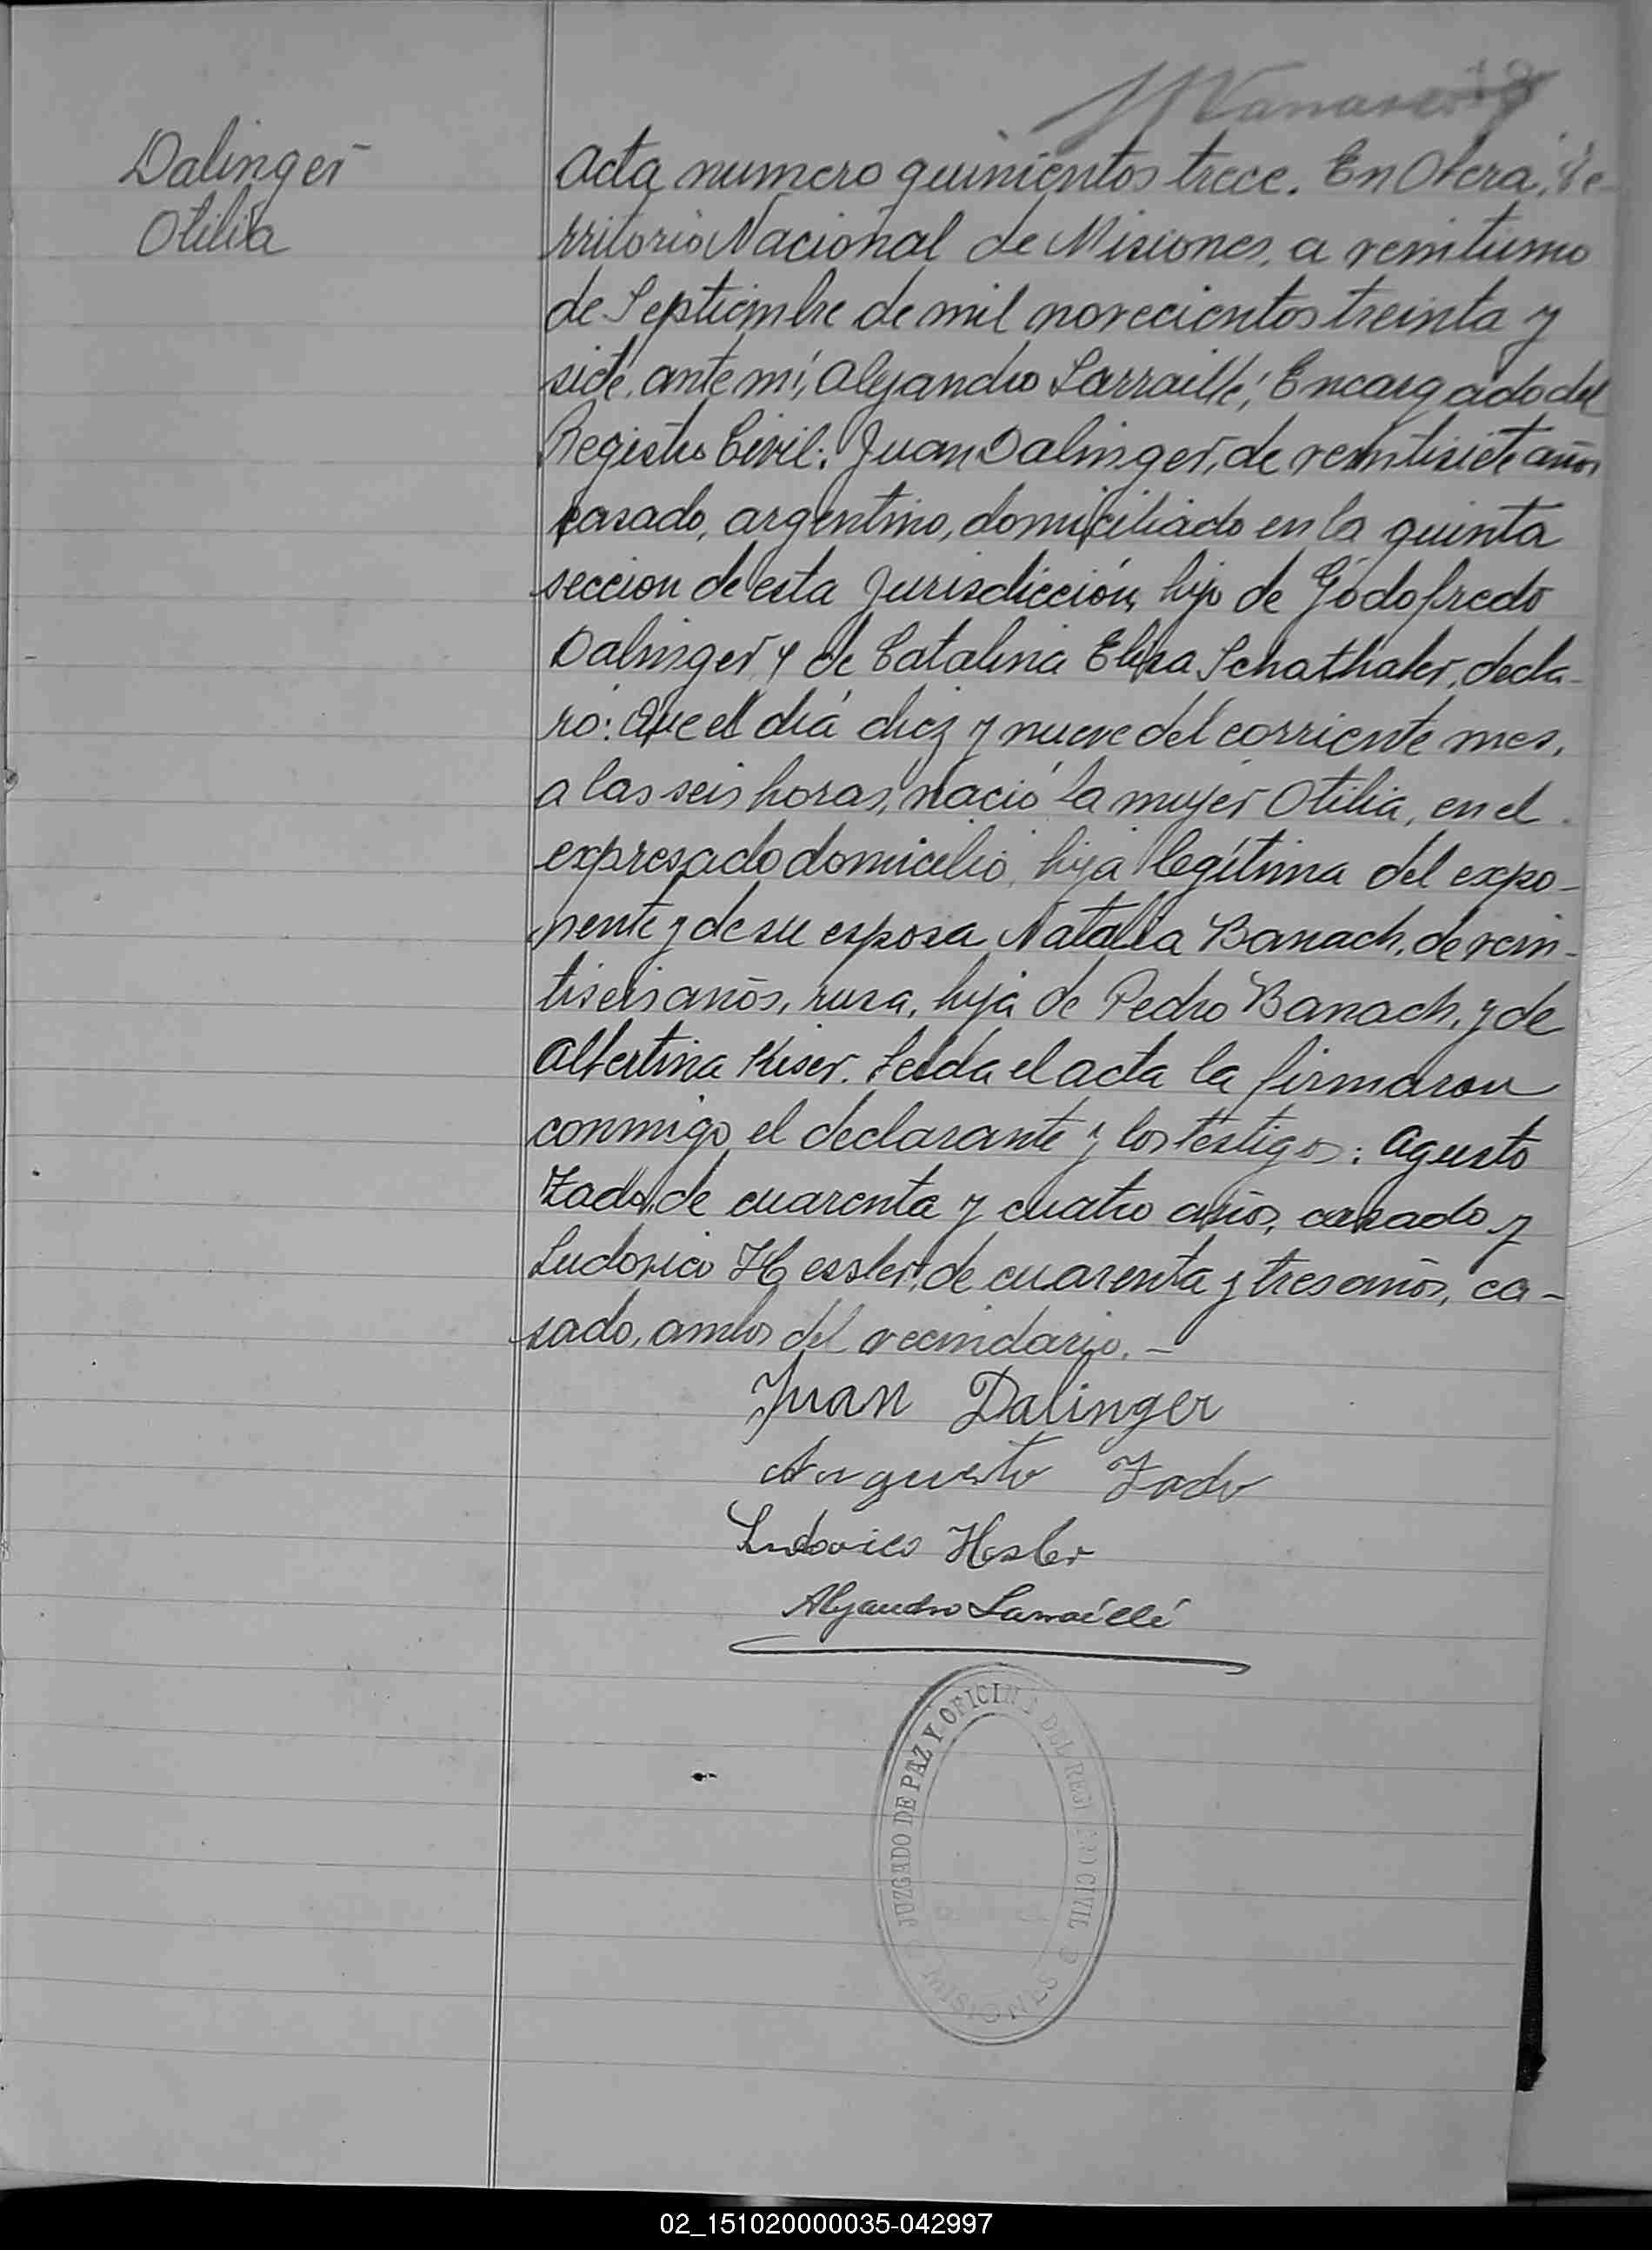 Dalinger
Otilia
Acta numero quinientos trece. En Obera, Te-
rritorio Nacional de Misiones, a veintiuno
de Septiembre de mil novecientos treinta y
siete, ante mi, Alejandro Larraillé, Encargado del
Registro Civil: Juan Dalinger, de veintisiete años
casado, argentino, domiciliado en la quinta
seccion de esta Jurisdicción, hijo de Godofredo
Dalinger y de Catalina Elisa Schathaler, decla-
ró: Que el día diez y nueve del corriente mes,
a las seis horas, nació la mujer Otilia, en el
expresado domicilio, hija legítima del expo-
nente y de su esposa Natalia Banach, de vein-
tiseis años, rusa, hija de Pedro Banach, y de
Albertina Kiser. Leida el acta la firmaron
conmigo el declarante y los testigos: Agusto
Zado, de cuarenta y cuatro años, casado y
Ludovico Hessler, de cuarenta y tres años, ca-
sado, ambos del vecindario. -
Juan Dalinger
Augusto Zado
Ludovico Hesler
Alejandro Larraillé
JUZGADO DE PAZ Y OFICINA DEL REGISTRO CIVIL
MISIONES
02_151020000035-042997